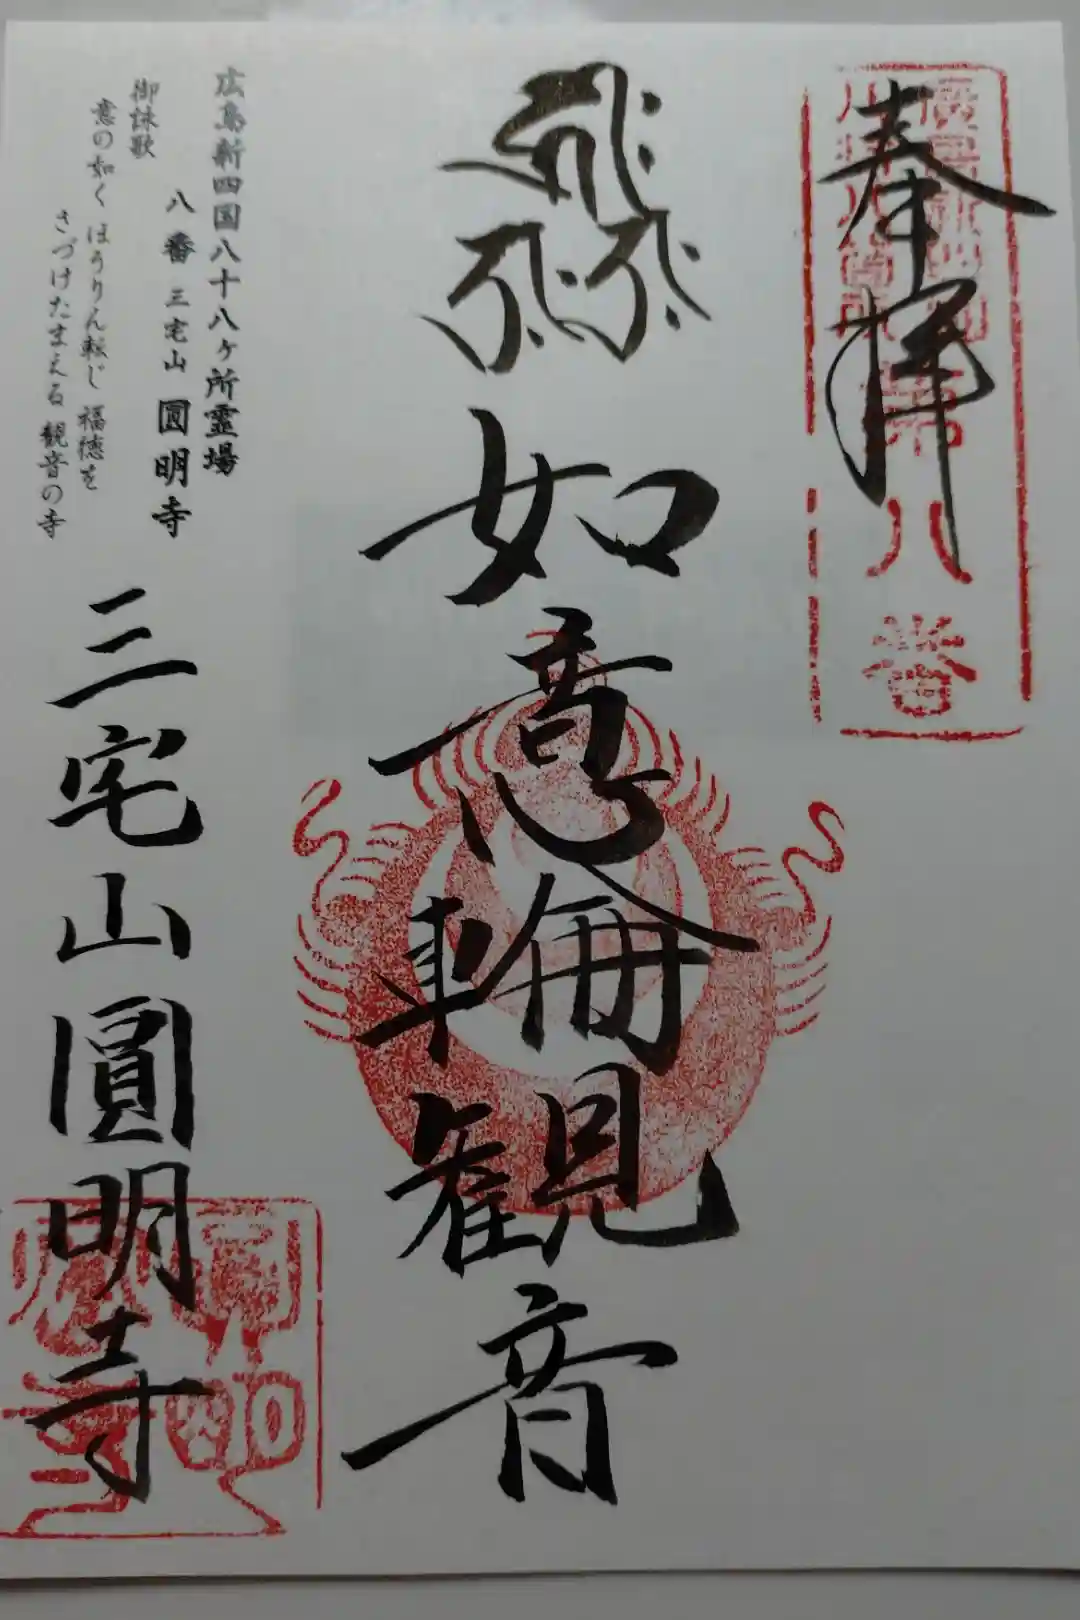 奉拝
八番
如意輪観音
広島新四国八十八ヶ所霊場
八番 三宅山 圓明寺
御詠歌
意の如く ほうりん転じ 福徳を
さづけたまえる 観音の寺
三宅山圓明寺